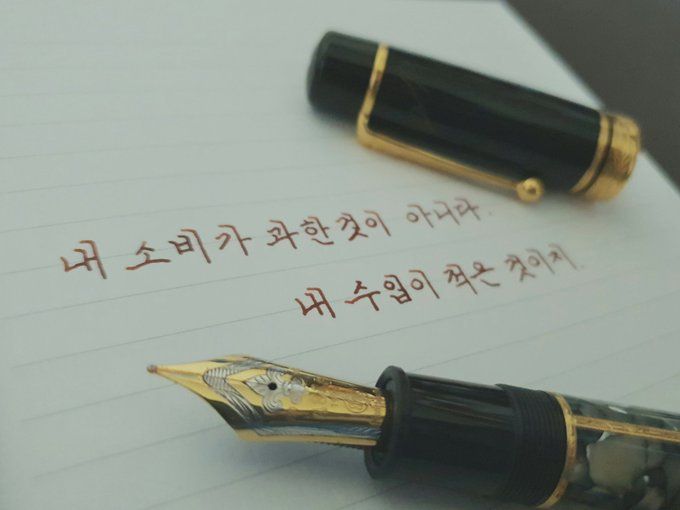 내 소비가 과한것이 아니다.
내 수입이 적은 것이지.